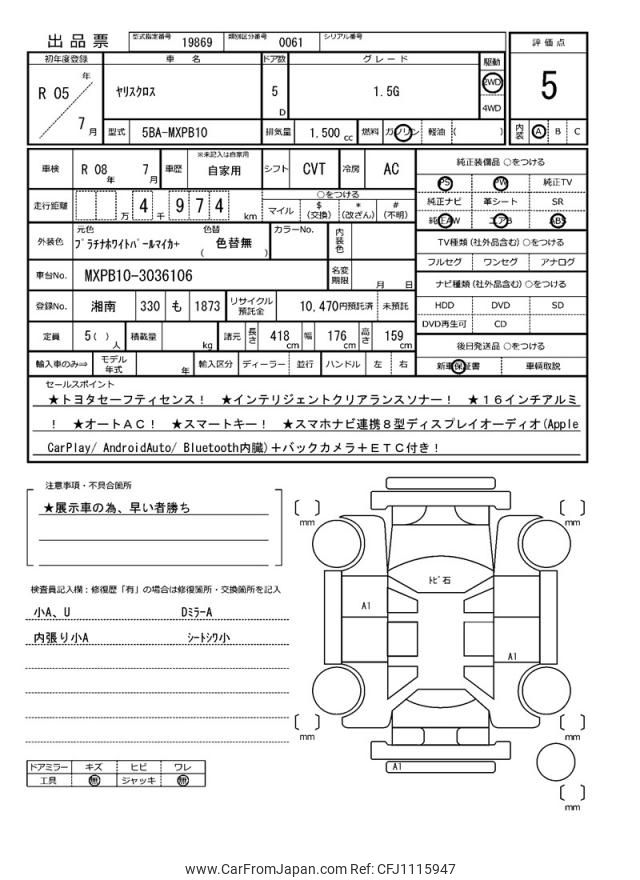 出品票 型式指定番号 19869 類別区分番号 0061 シリアル番号
評価点
5
内装 A B C
初年度登録 車名 ドア数 グレード 駆動
R 05 年 7 月 ヤリスクロス 5 D 1.5G 2WD 4WD
型式 5BA-MXPB10 排気量 1.500 cc 燃料 ガソリン 軽油 ( )
車検 R 08 年 7 月 車歴 ※未記入は自家用 自家用 シフト CVT 冷房 AC
走行距離 万 4 千 9 7 4 km ○をつける マイル $ (交換) * (改ざん) # (不明)
外装色 元色 プラチナホワイトパールマイカ+ 色替 ( 色替無 ) カラーNo. 内装色
車台No. MXPB10-3036106 名変期限 月 日
登録No. 湘南 330 も 1873 リサイクル預託金 10.470円預託済 未預託
定員 5( ) 人 積載量 kg 諸元 長さ 418 cm 幅 176 cm 高さ 159 cm
輸入車のみ⇒ モデル年式 年 輸入区分 ディーラー 並行 ハンドル 左 右
純正装備品 ○をつける
PS PW 純正TV
純正ナビ 革シート SR
純正AW エアB ABS
TV種類 (社外品含む) ○をつける
フルセグ ワンセグ アナログ
ナビ種類 (社外品含む) ○をつける
HDD DVD SD
DVD再生可 CD
後日発送品 ○をつける
新車保証書 車輌取説
セールスポイント
★トヨタセーフティセンス! ★インテリジェントクリアランスソナー! ★16インチアルミ
! ★オートAC! ★スマートキー! ★スマホナビ連携8型ディスプレイオーディオ(Apple
CarPlay/ AndroidAuto/ Bluetooth内臓)+バックカメラ+ETC付き!
注意事項・不具合箇所
★展示車の為、早い者勝ち
検査員記入欄:修復歴「有」の場合は修復箇所・交換箇所を記入
小A、U DミラーA
内張り小A シートシワ小
ドアミラー キズ ヒビ ワレ
工具 無 ジャッキ 無
mm
mm
トビ石
A1
A1
mm
mm
A1
mm
www.CarFromJapan.com Ref: CFJ1115947